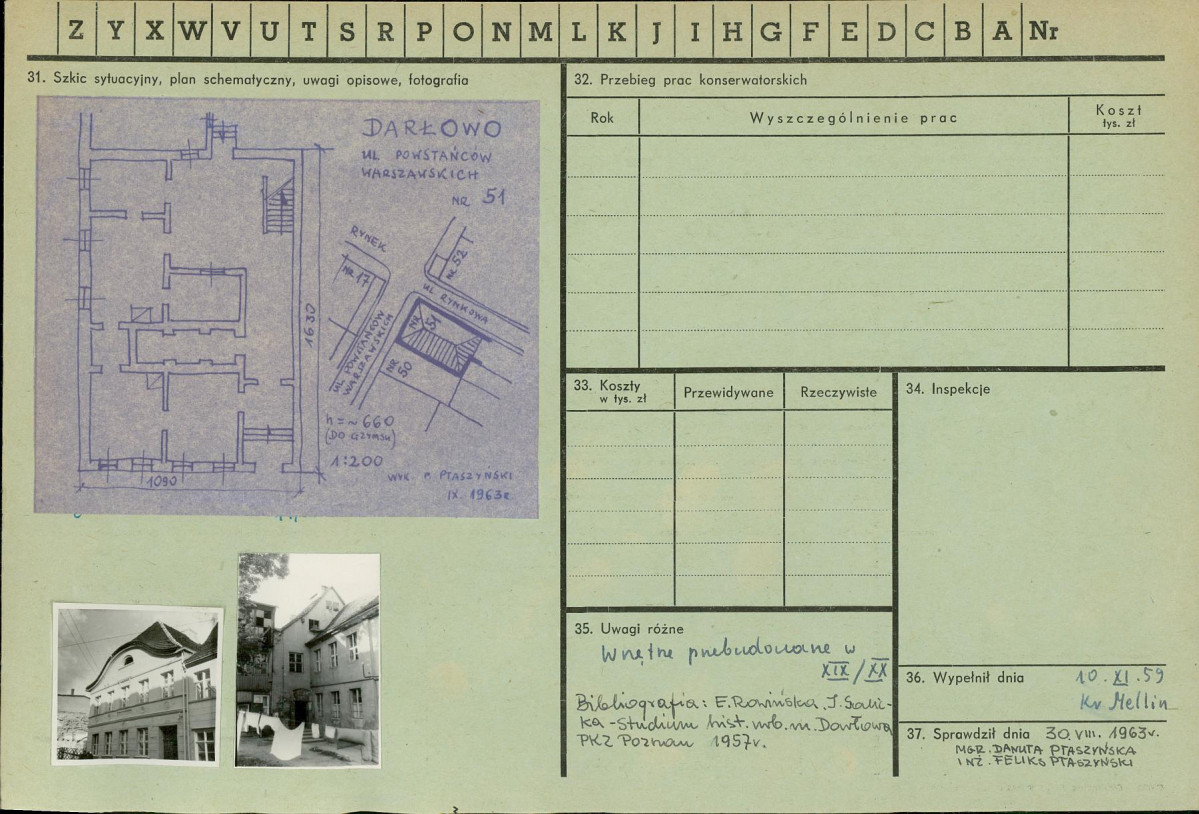 Z Y X W V U T S R P O N M L K J I H G F E D C B A Nr
31. Szkic sytuacyjny, plan schematyczny, uwagi opisowe, fotografia
DARŁOWO
UL POWSTAŃCÓW
WARSZAWSKICH
NR 51
RYNEK
NR 17
NR 52
UL RYNKOWA
NR 51
UL POWSTAŃCÓW
WARSZAWSKICH
NR 50
1630
1090
h = ~ 660
(DO GZYMSU)
1:200
WYK. F. PTASZYŃSKI
IX. 1963r.
32. Przebieg prac konserwatorskich
Rok
Wyszczególnienie prac
Koszt
tys. zł
33. Koszty
w tys. zł
Przewidywane
Rzeczywiste
34. Inspekcje
35. Uwagi różne
Wnętrze przebudowane w
XIX/XX
Bibliografia: E. Rowińska, J.
ka - Studium hist. urb. m. Darłowa
PKZ Poznań 1957r.
36. Wypełnił dnia 10.XI.59
Kv Mellin
37. Sprawdził dnia 30.VIII. 1963r.
MGR. DANUTA PTASZYŃSKA
INŻ. FELIKS PTASZYŃSKI